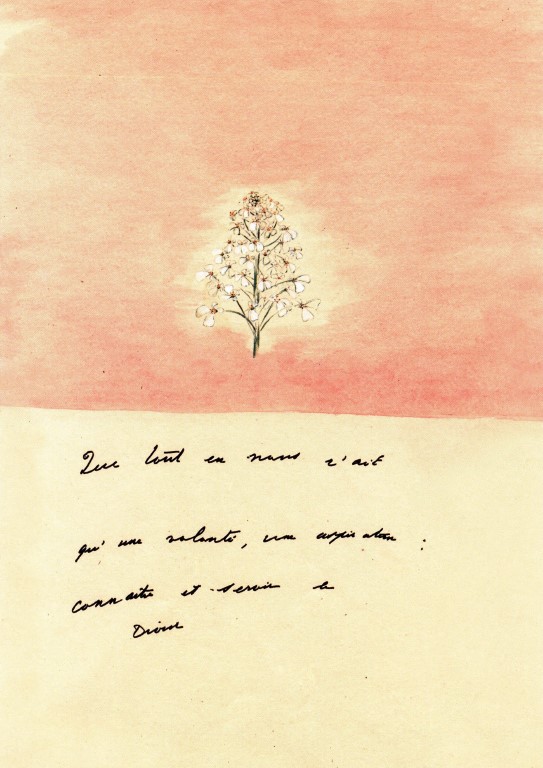 Que tout en nous n'ait
qu'une volonté, une aspiration :
connaître et servir le
Divin